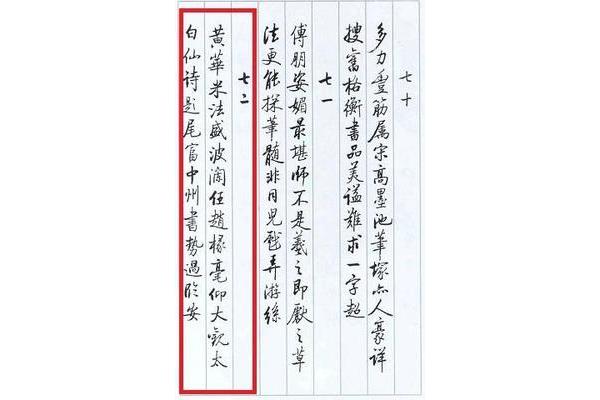 七十
多力豐筋属宋高墨池筆塚亦人豪詳
搜舊格衡書品美謚難求一字超
七一
傅朋姿媚最堪師不是羲之即獻之草
法更能探筆髓非同兒戲弄游絲
七二
黃華米法盛波瀾任趙椽毫仰大觀太
白仙詩題尾富中州書勢過臨安